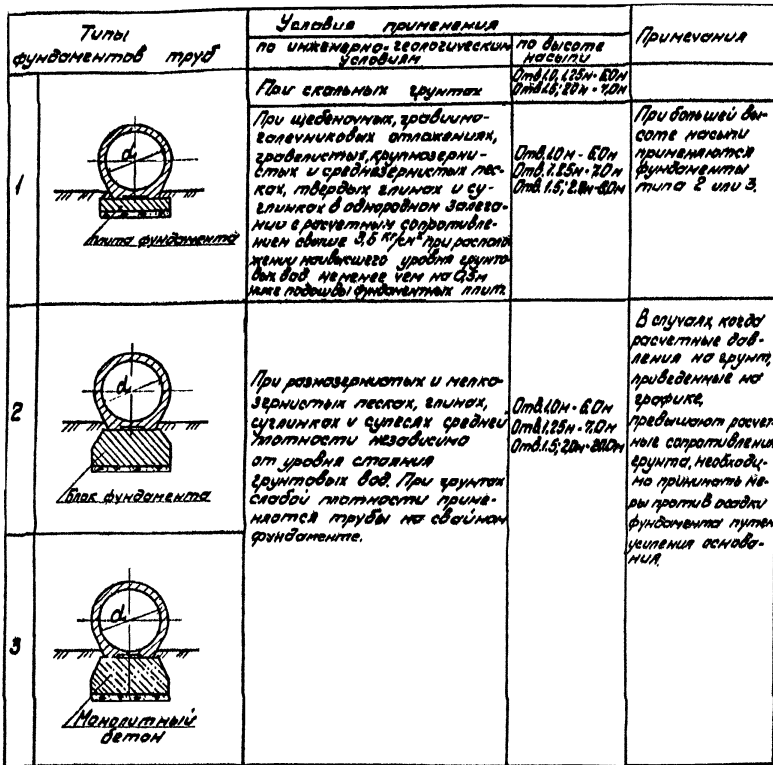 Типы
фундаментов труб
Условия применения
по инженерно-геологическим
условиям
по высоте
насыпи
Примечания
1
d
Плита фундамента
При скальных грунтах
Отв. 1.0, 1.25м - 6.0м
Отв. 1.5; 2.0м - 7.0м
При щебеночных, гравийно-
галечниковых отложениях,
гравелистых, крупнозерни-
стых и среднезернистых пес-
ках, твердых глинах и су-
глинках в однородном залега-
нии с расчетным сопротивле-
нием свыше 3,5 кг/см² при располо-
жении наивысшего уровня грунто-
вых вод не менее чем на 0,3м
ниже подошвы фундаментных плит.
Отв. 1.0м - 6.0м
Отв. 1.25м - 7.0м
Отв. 1.5; 2.0м -
При большей вы-
соте насыпи
применяются
фундаменты
типа 2 или 3.
2
d
Блок фундамента
При разнозернистых и мелко-
зернистых песках, глинах,
суглинках и супесях средней
плотности независимо
от уровня стояния
грунтовых вод. При грунтах
слабой плотности приме-
няются трубы на свайном
фундаменте.
Отв. 1.0м - 6.0м
Отв. 1.25м - 7.0м
Отв. 1.5; 2.0м -
В случаях, когда
расчетные дав-
ления на грунт,
приведенные на
графике,
превышают расчет-
ные сопротивления
грунта, необходи-
мо принимать ме-
ры против осадки
фундамента путем
усиления основа-
ния.
3
d
Монолитный
бетон